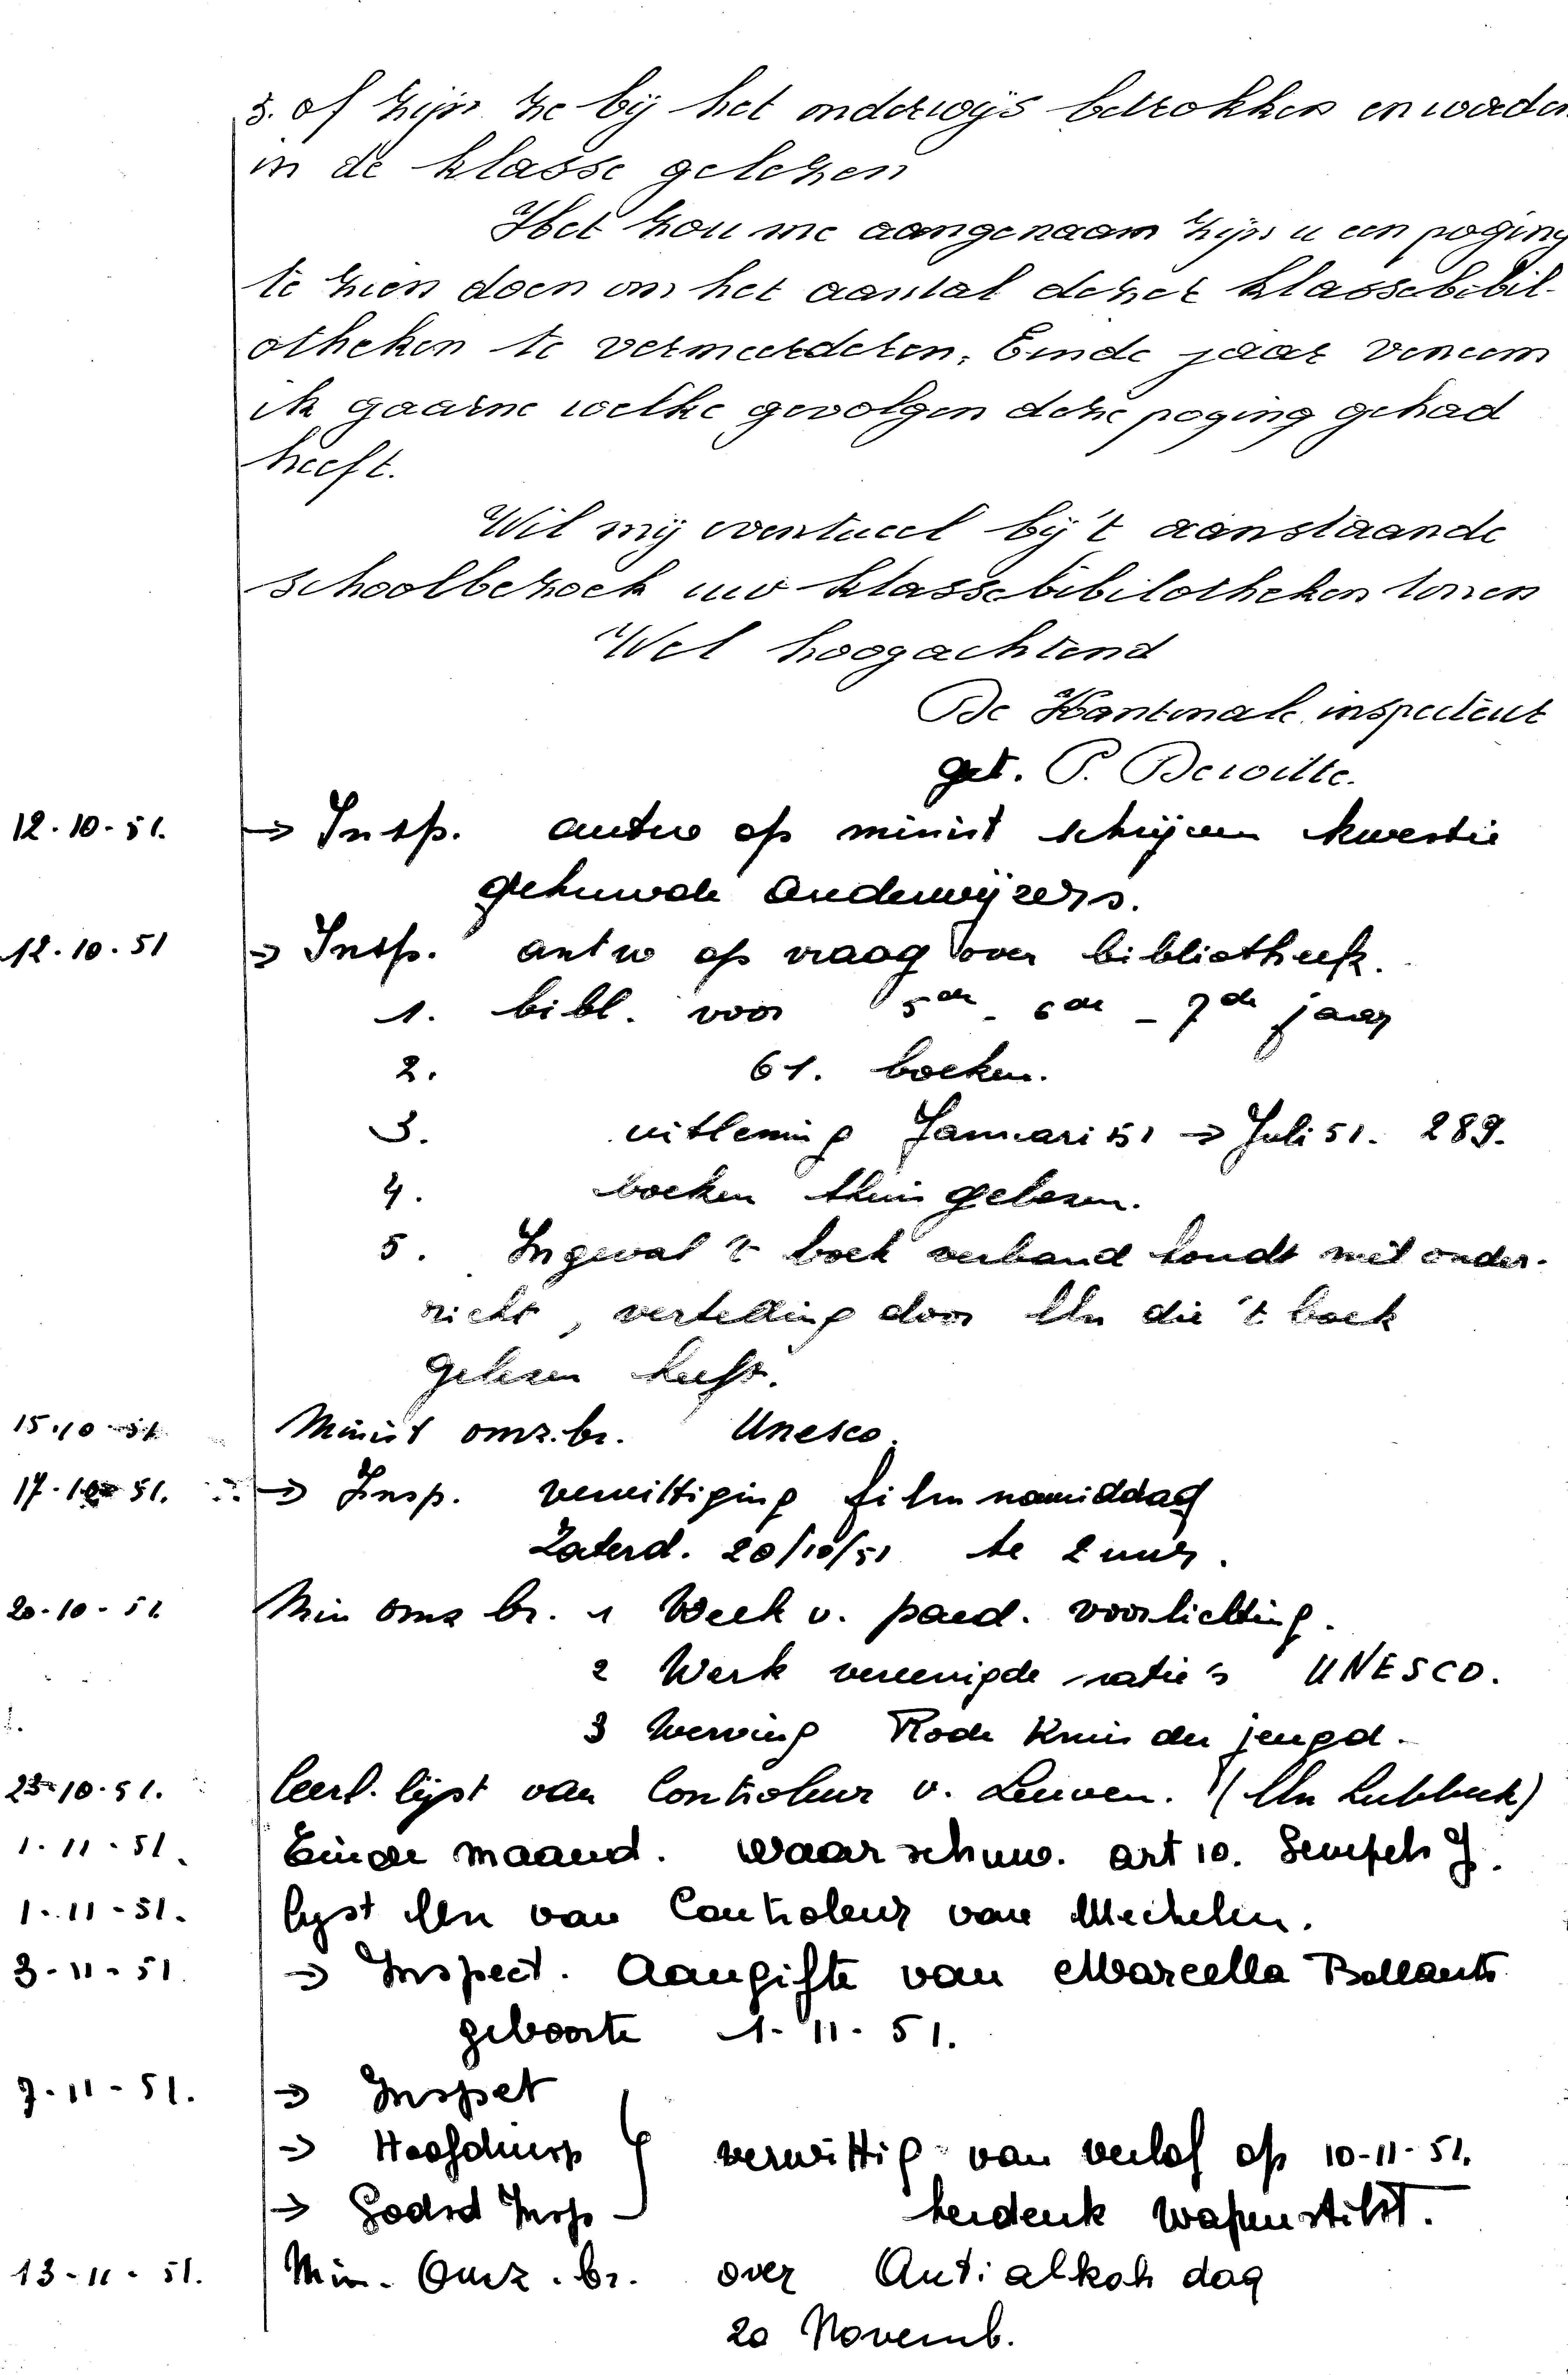 3. of zijn ze bij het onderwijs betrokken en worden
in de klasse gelezen
Het zou me aangenaam zijn u een poging
te zien doen om het aantal dezer klassebibil-
otheken te vermeerderen. Einde jaar verneem
ik gaarne welke gevolgen deze poging gehad
heeft.
Wil mij eventueel bij 't aanstaande
schoolbezoek uw klassebibilotheken tonen
Wel hoogachtend
De Kantonale inspecteur
get. P. Dewitte.
12-10-51. → Insp. antw op minist schrijven kwestie
gehuwde onderwijzers.
12.10.51 → Insp. antw op vraag over bibliotheek.
1. bibl. voor 5de - 6de - 7de jaar
2. 61. boeken.
3. uitlening Januari 51 → Juli 51. 289.
4. boeken thuis gelezen.
5. Ingeval 't boek verband houdt met onder-
richt, vertelling door lln die 't boek
gelezen heeft.
15.10-51 Minist omz.br. Unesco.
17-10-51. → Insp. verwittiging film namiddag
Zaterd. 20/10/51 te 2 uur.
20-10-51 Min omz br. 1 Week v. paed. voorlichting.
2 Werk verenigde natie's UNESCO.
3 Werving Rode Kruis der jeugd.
23-10-51. leerl. lijst van Controleur v. Leuven. (lln Lubbeek)
1-11-51. Einde maand. waarschuw. art 10. J.
1-11-51. lijst lln van Controleur van Mechelen.
3-11-51 → Inspect. Aangifte van Marcella Bollants
geboorte 1-11-51.
7-11-51. → Inspet
→ Hoofdinsp } verwittig van verlof op 10-11-51.
→ Godsd Insp herdenk wapenstilst.
13-11-51. Min. Omz.br. over Anti alkoh dag
20 Novemb.